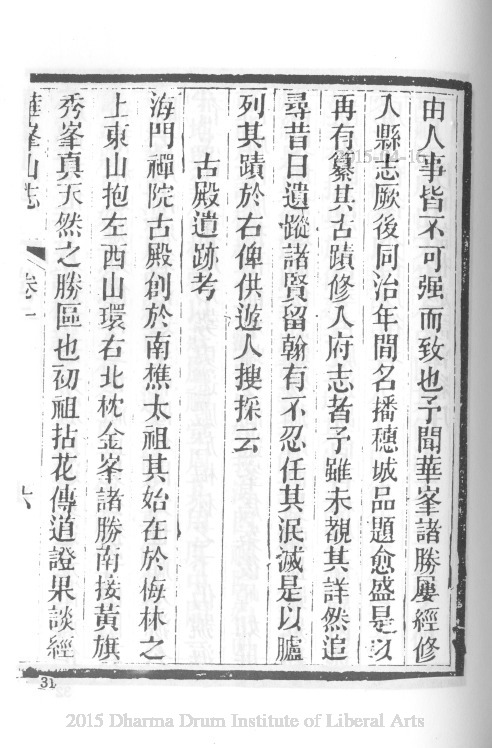 由人事皆不可强而致也予聞華峯諸勝屢經修
入縣志厥後同治年間名播穗城品題愈盛是以
再有纂其古蹟修入府志者予雖未覩其詳然追
尋昔日遺蹤諸賢留翰有不忍任其泯滅是以臚
列其蹟於右俾供遊人搜採云
古殿遺跡考
海門禪院古殿創於南樵太祖其始在於梅林之
上東山抱左西山環右北枕金峯諸勝南接黃旗
秀峯真天然之勝區也初祖拈花傳道證果談經
華峯山志 卷一 六
31
2015 Dharma Drum Institute of Liberal Arts